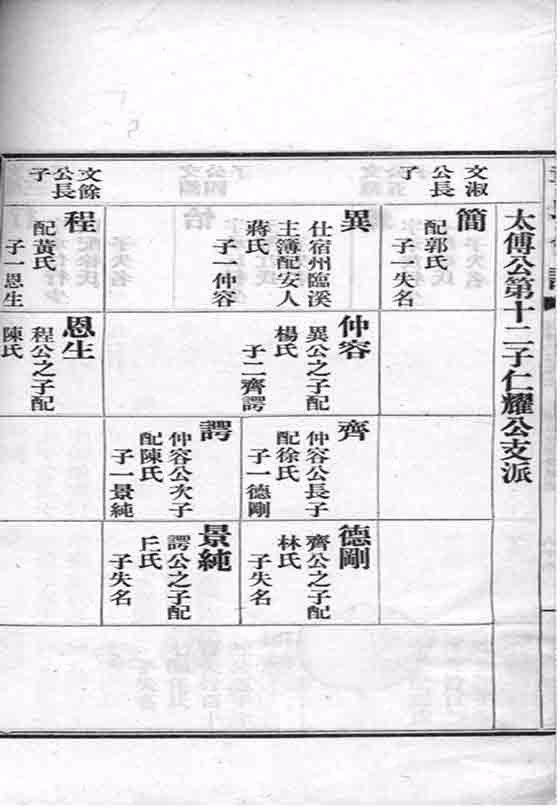 太傅公第十二子仁耀公支派
文淑
公長
子
簡
配郭氏
子一失名
異
仕宿州臨溪
主簿配安人
蔣氏
子一仲容
仲容
異公之子配
楊氏
子二齊諤
齊
仲容公長子
配徐氏
子一德剛
德剛
齊公之子配
林氏
子失名
諤
仲容公次子
配陳氏
子一景純
景純
諤公之子配
氏
子失名
文餘
公長
子
程
配黃氏
子一恩生
恩生
程公之子配
陳氏